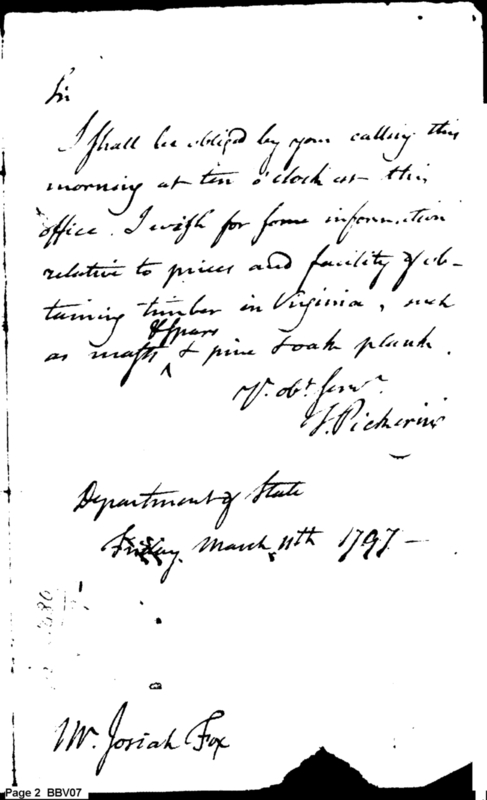 Sir
I shall be obliged by your calling this
morning at ten o'clock at this
office. I wish for some information
relative to prices and facility of ob-
taining timber in Virginia, such
& spars
as masts ^ & pine & oak plank.
Yr. obt. servt.
T. Pickering
Department of State
Friday March 11th 1797 —
Mr. Josiah Fox
Page 2 BBV07